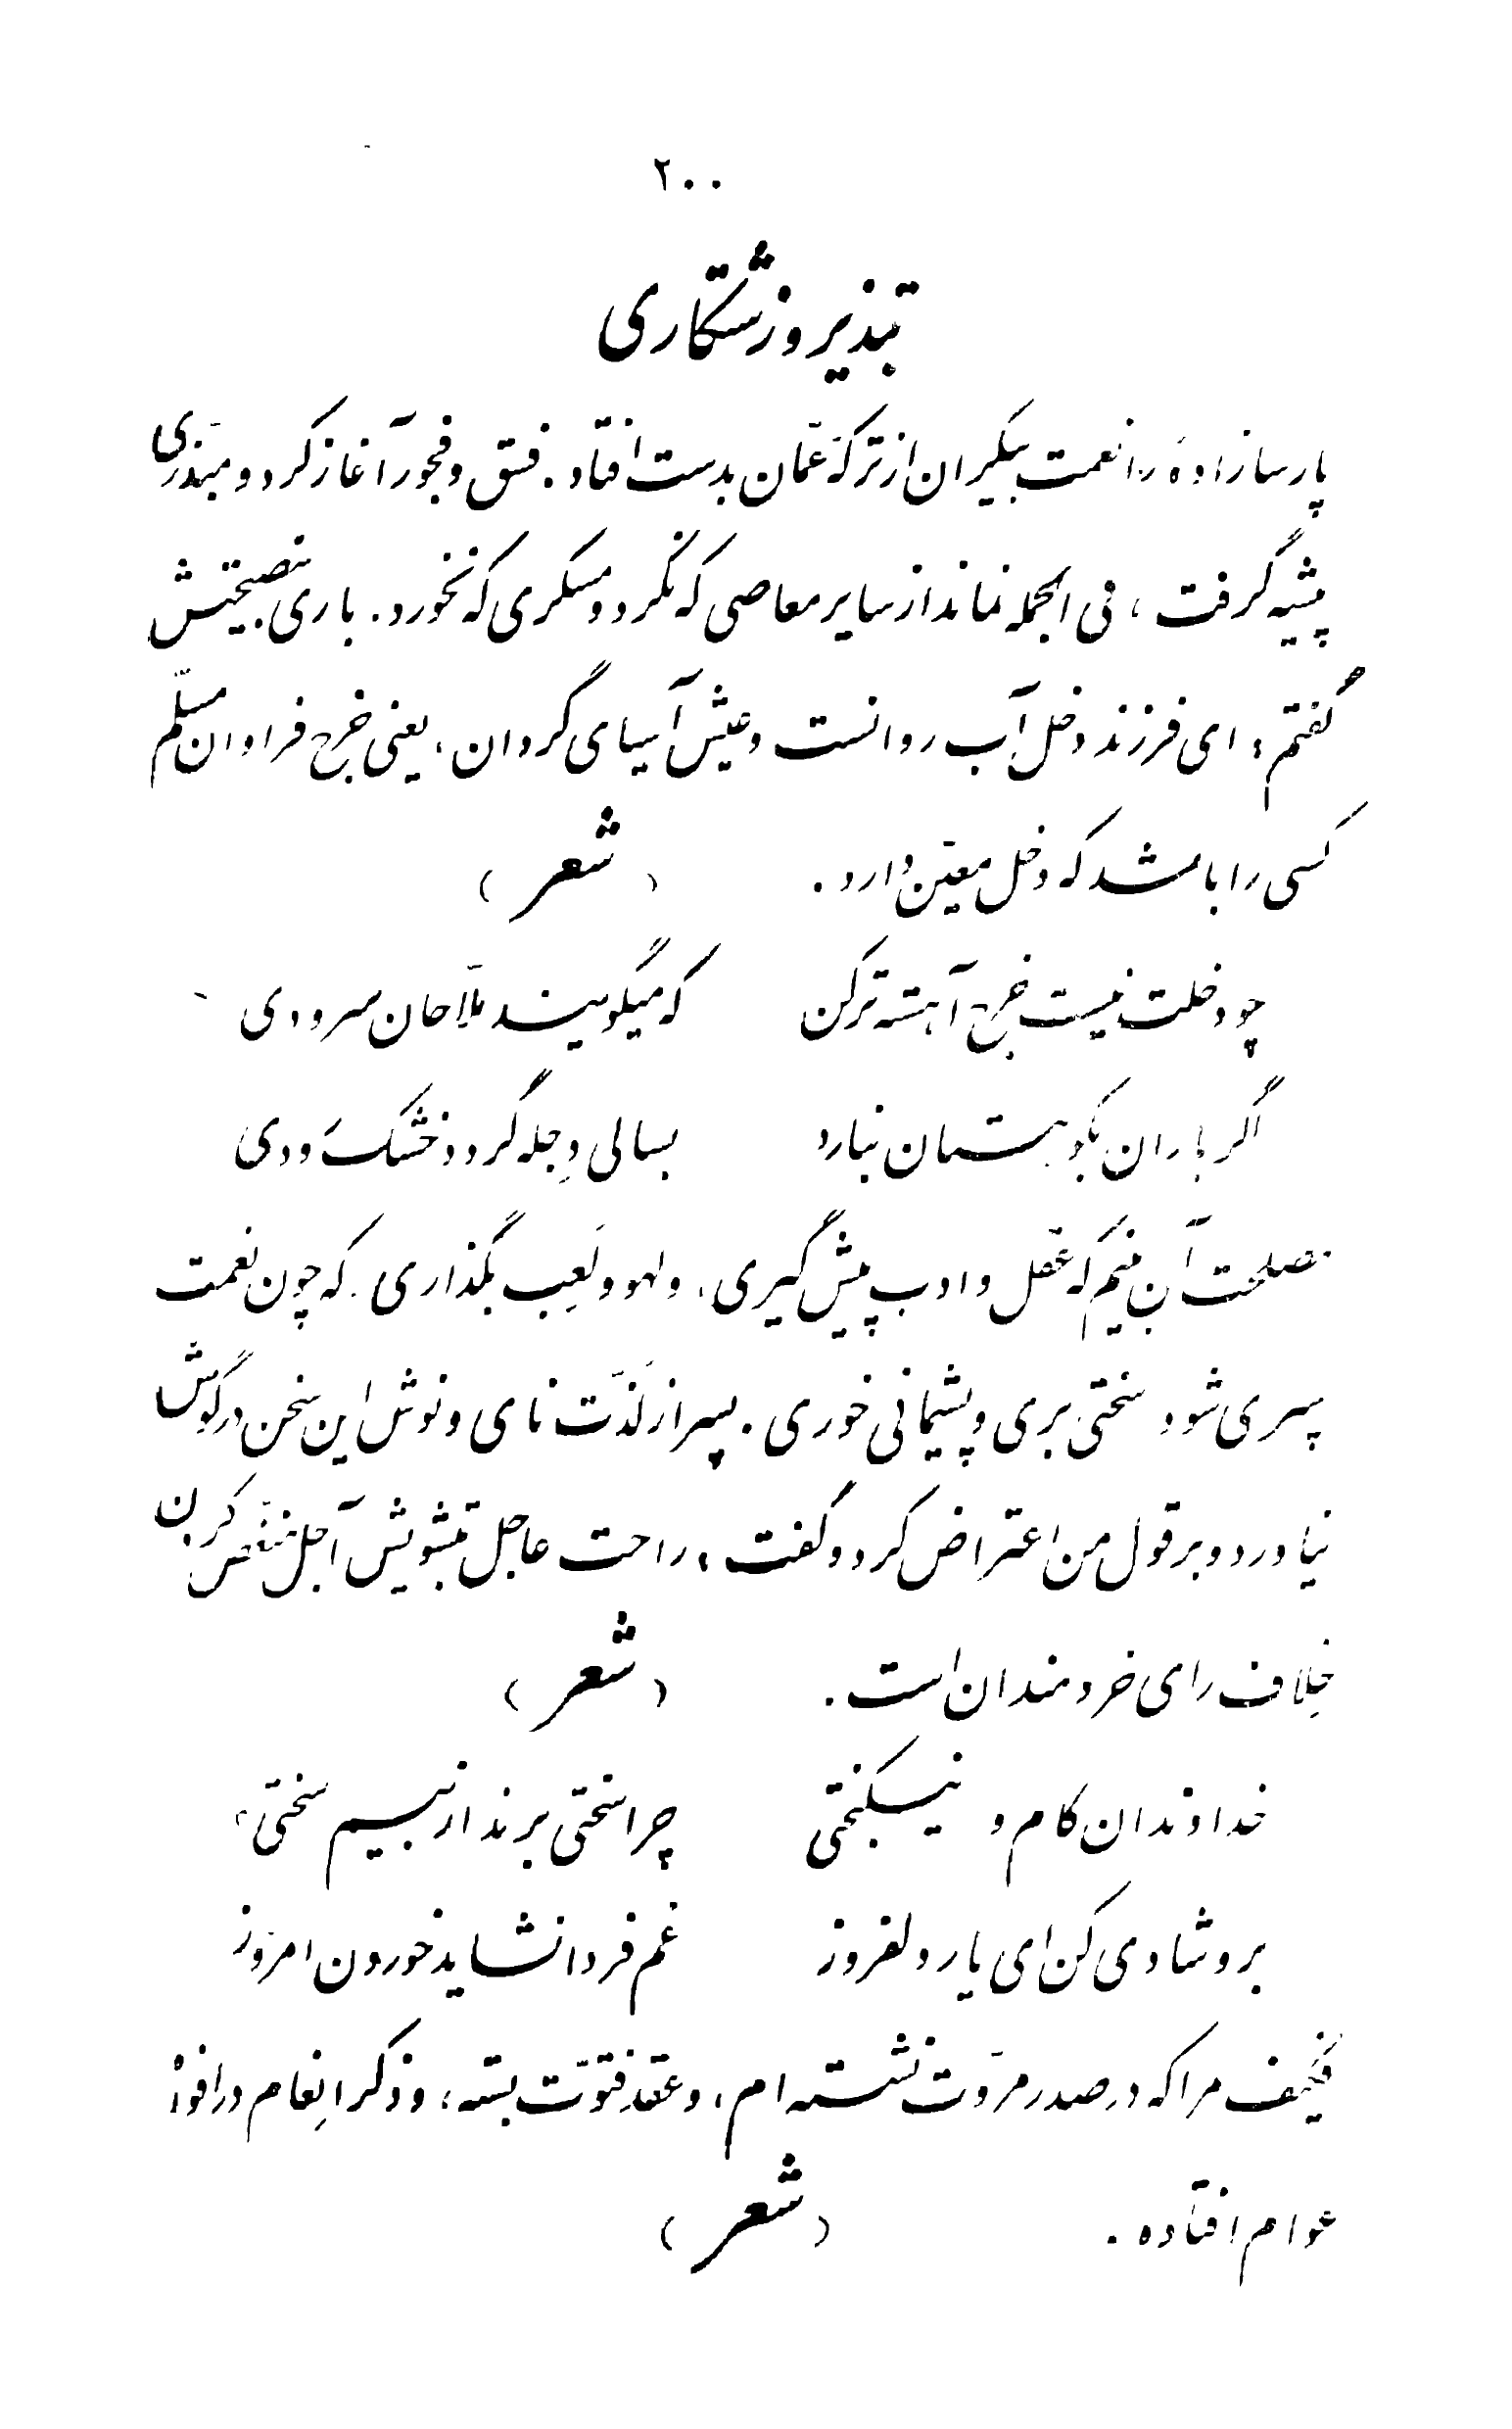 ۲۰۰
تبذیر و زشتکاری
پارسازادهٔ را نعمت بیکران از ترکهٔ عمّان بدست افتاد. فسق و فجور آغاز کرد و مبذّری
پیشه گرفت، فی الجمله نماند از سایر معاصی که نکرد و مسکری که نخورد. باری بنصیحتش
گفتم، ای فرزند دخل آب روانست و عیش آسیای گردان، یعنی خرج فراوان مسلّم
کسی را باشد که دخل معیّن دارد. (شعر)
چو دخلت نیست خرج آهسته تر کن که میگویند ملاّحان سرودی
اگر باران بکوهستان نبارد بسالی دجله گردد خشک رودی
مصلحت آن بینم که عقل و ادب پیش گیری، و لهو و لَعِب بگذاری. که چون نعمت
سپری شود سختی بری و پشیمانی خوری. پسر از لَذّت نای و نوش این سخن در گوش
نیاورد و بر قول من اعتراض کرد و گفت، راحت عاجل بتشویش آجل منغّص کردن
خِلاف رای خردمندان است. (شعر)
خداوندان کام و نیکبختی چرا سختی برند از بیم سختی،
برو شادی کن ای یار دلفروز غم فردا نشاید خوردن امروز
فَکَیف مرا که در صدر مروّت نشسته ام، و عقدِ فتوّت بسته، و ذکر اِنعام در افواه
عوام افتاده. (شعر)